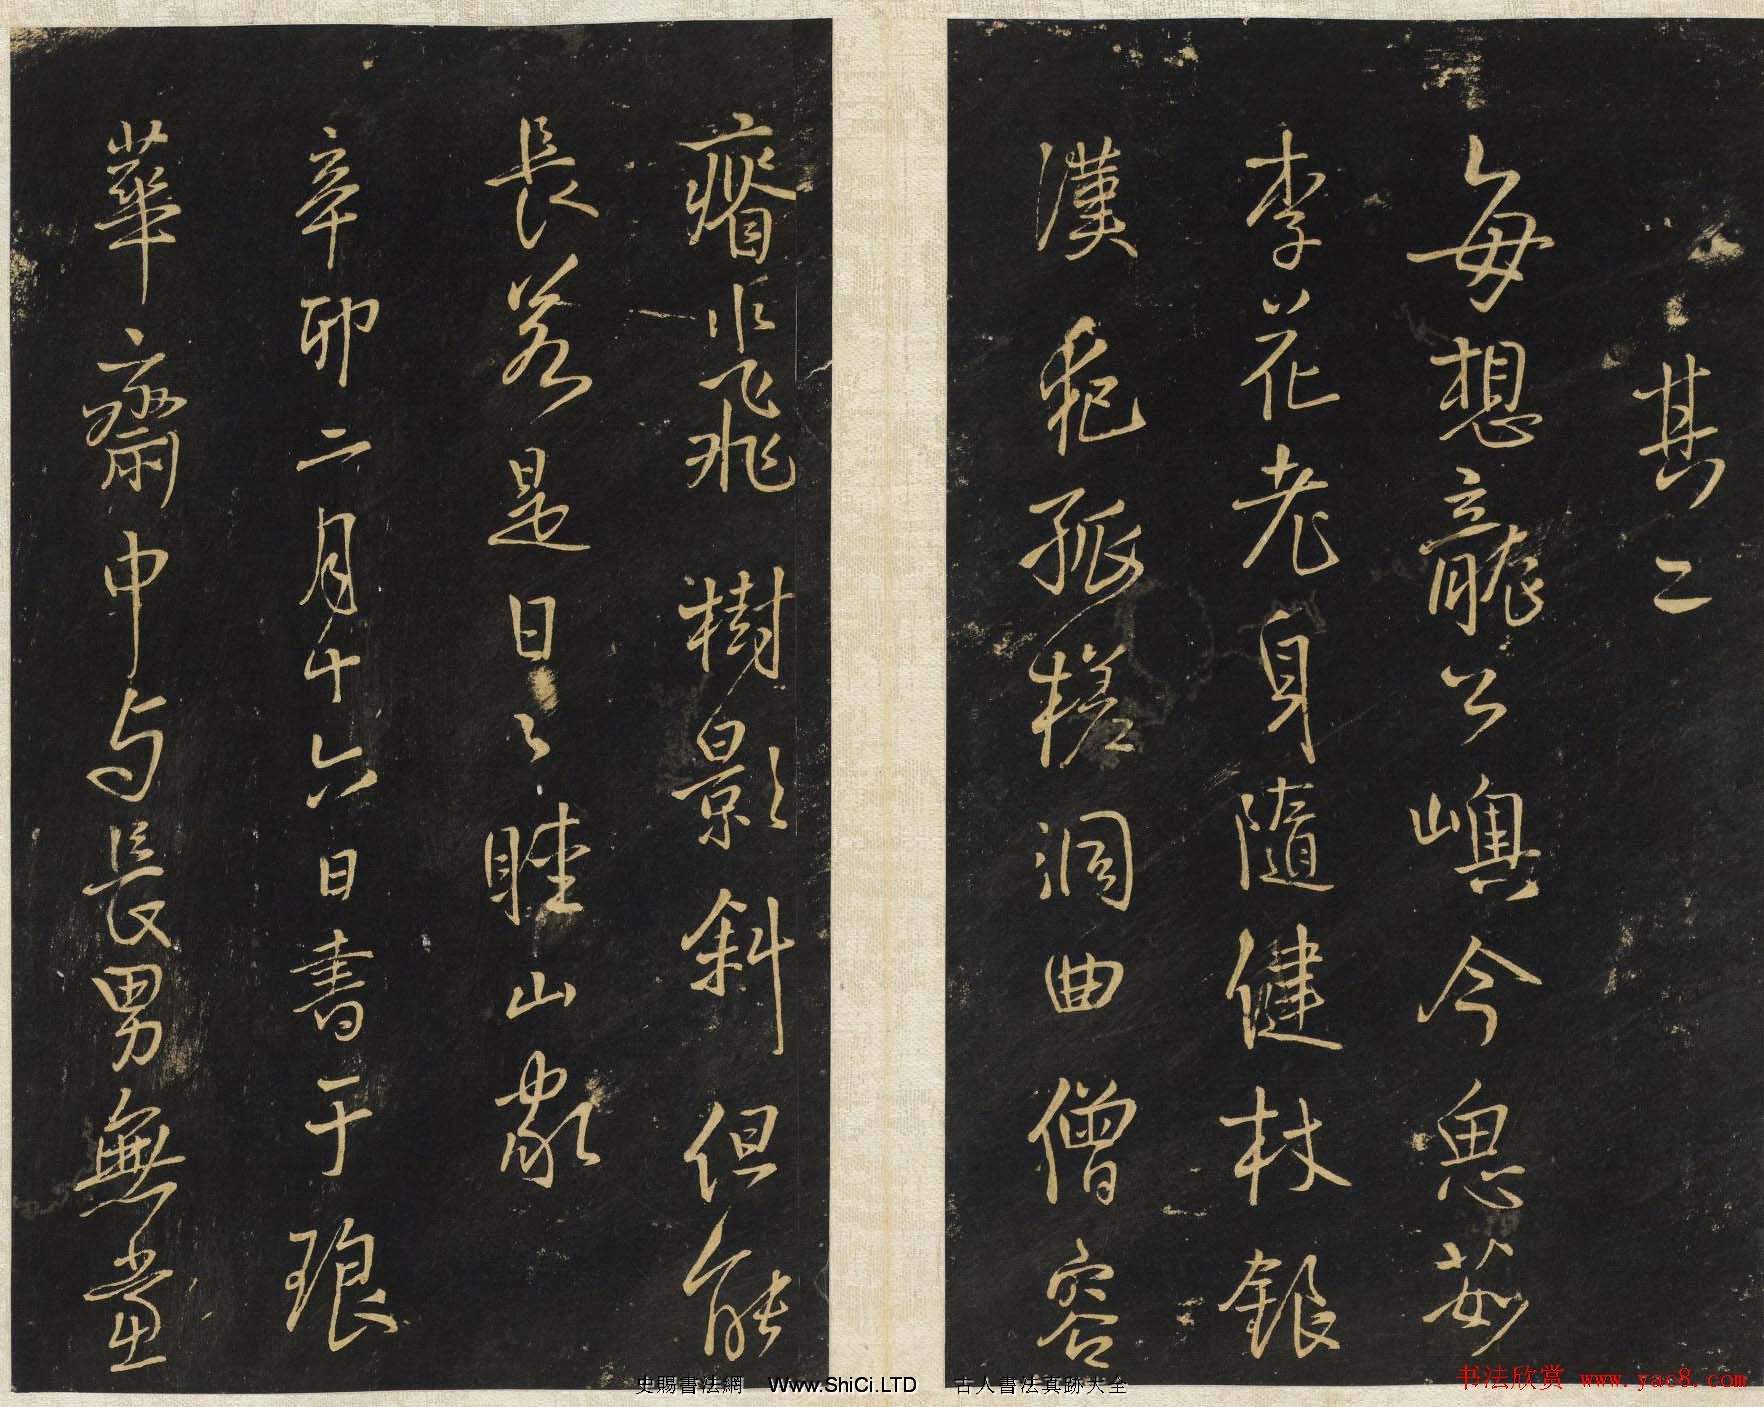 其二
每想龍公嶼今思茹
李花老身隨健杖銀
漢犯孤槎洞曲僧容
瘠飛樹影斜但能
長若是日〻睦山家
辛卯二月十六日書于琅
華齋中与長男無黨
史賜書法網 Www.ShiCi.LTD 古人書法真跡大全
书法欣赏 www.yac8.com